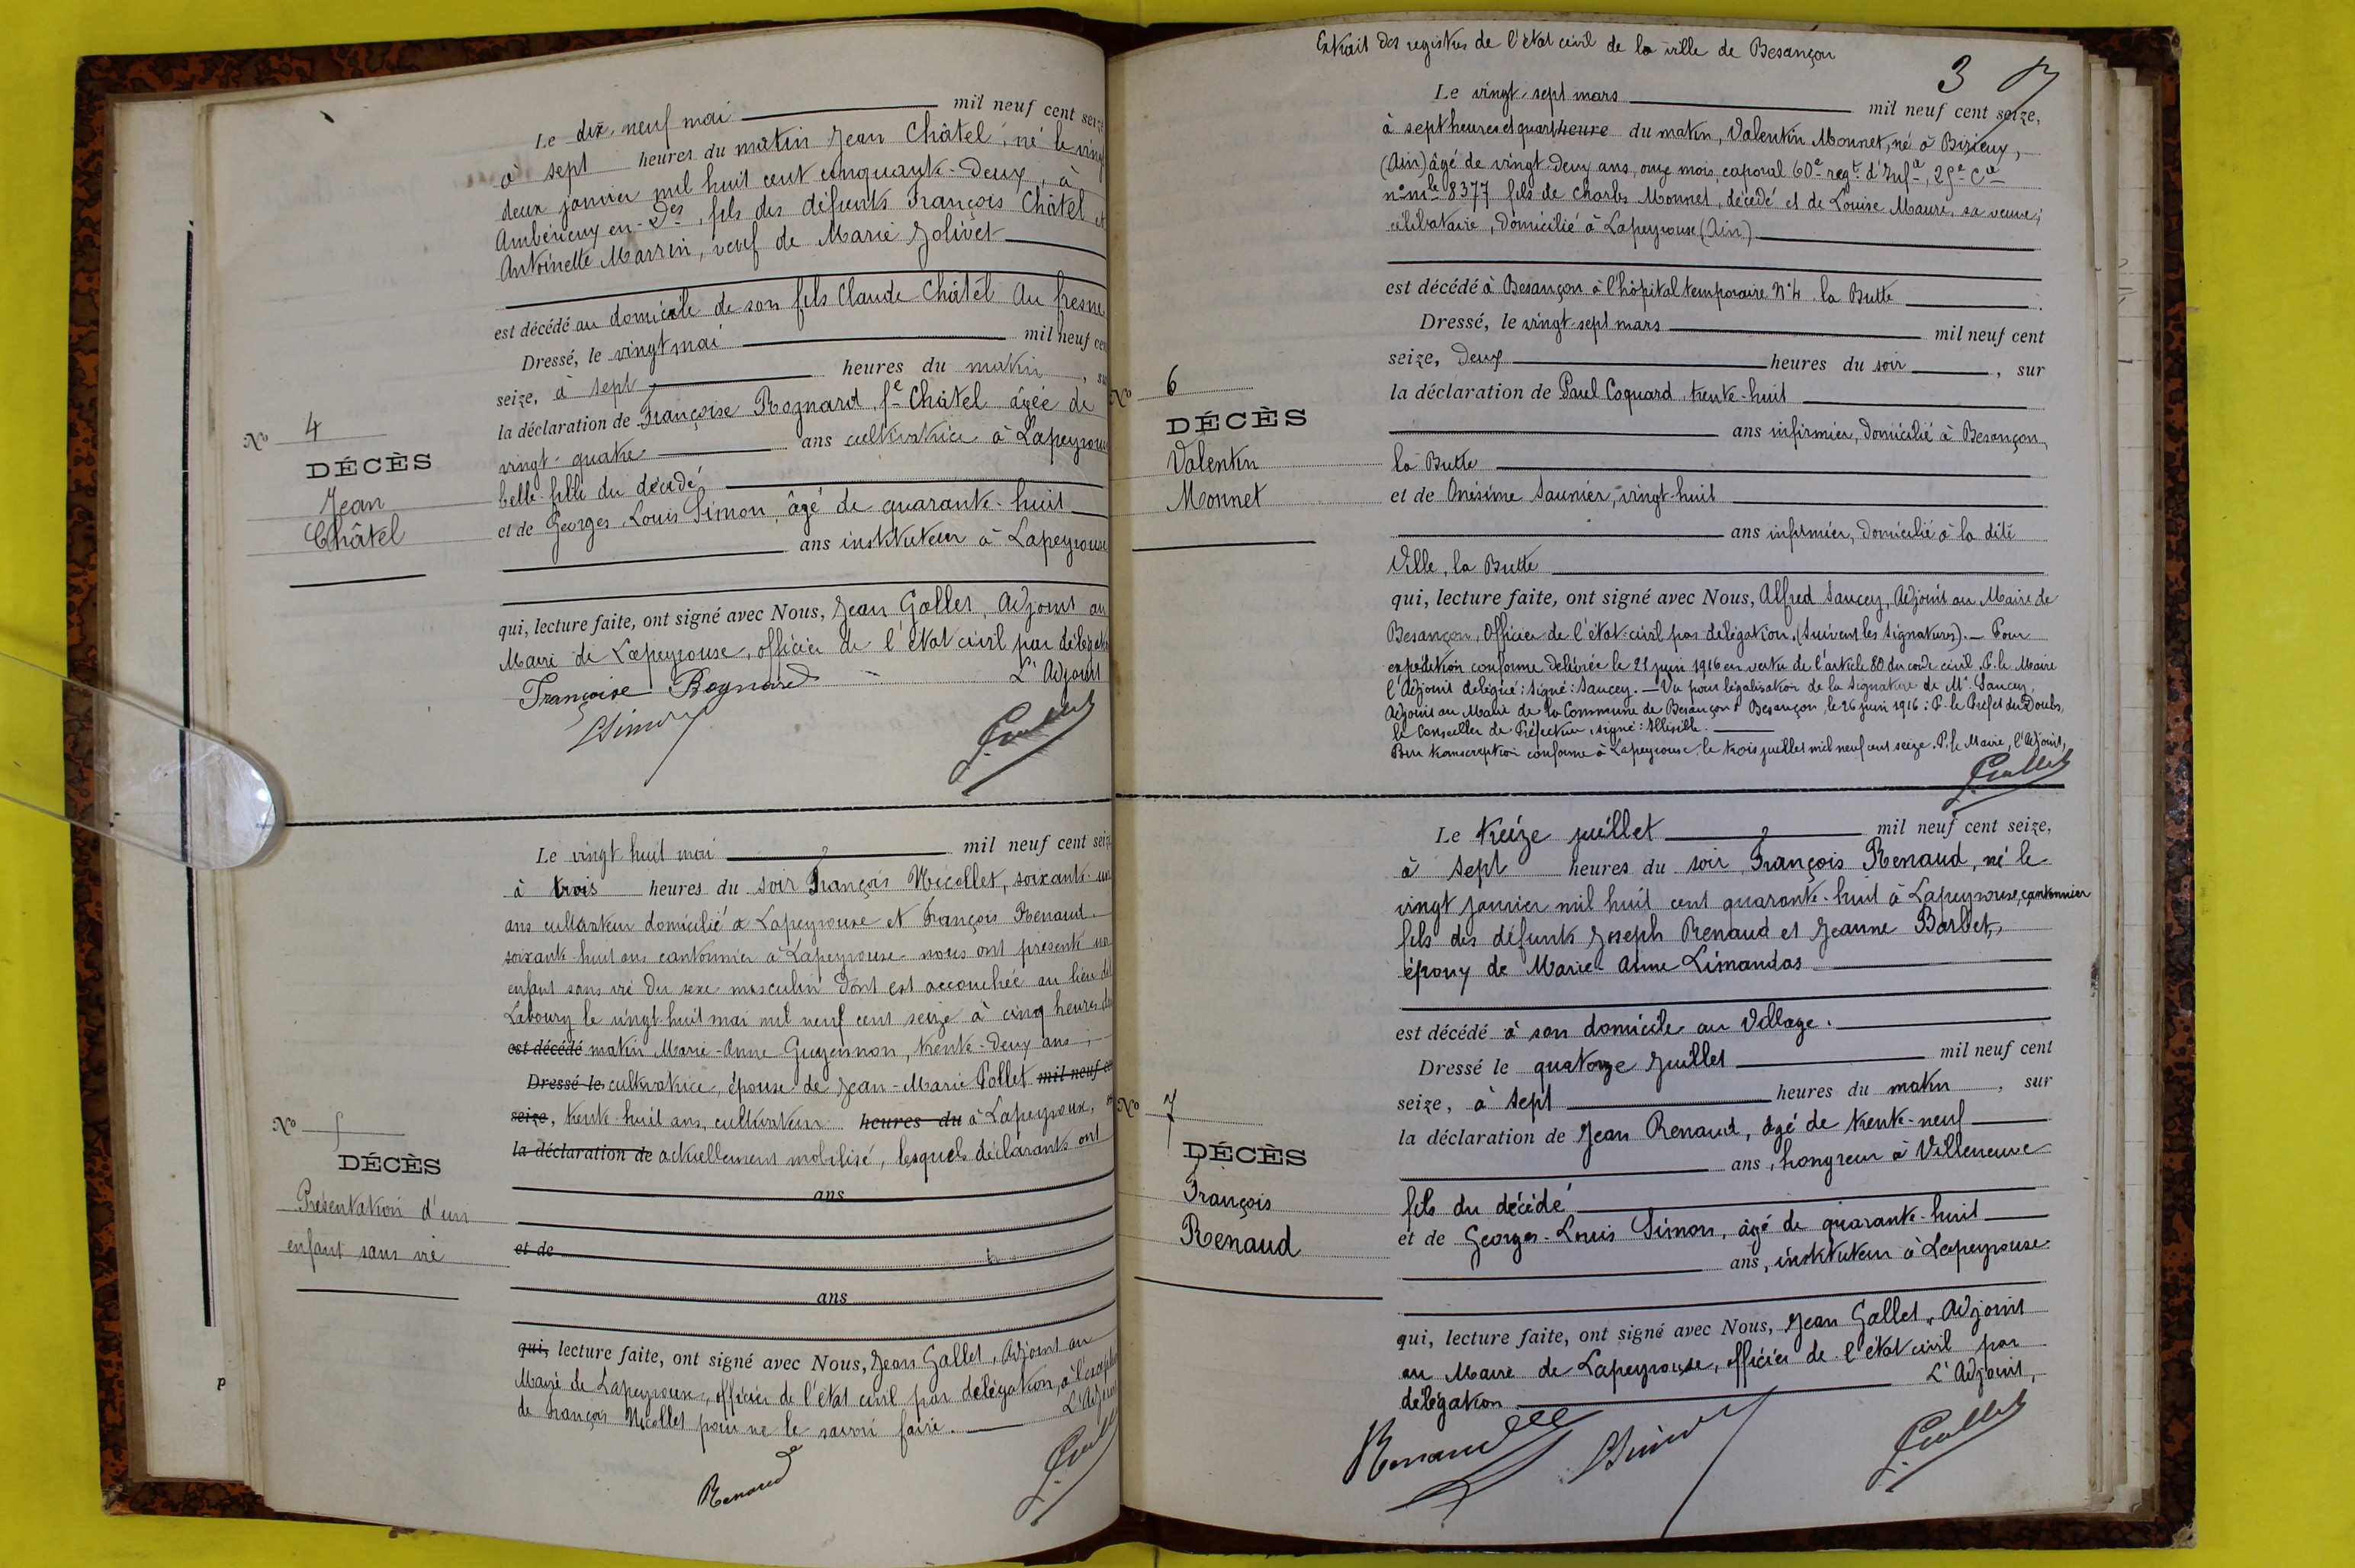 Le dix-neuf mai mil neuf cent seize
à sept heures du matin Jean Châtel, né le vingt
deux janvier mil huit cent cinquante-deux, à
Ambérieux en-Des, fils des défunts François Châtel et
Antoinette Marrin, veuf de Marie Jolivet
est décédé au domicile de son fils Claude Châtel Au fresne
Dressé, le vingt mai mil neuf cen
seize, à sept heures du matin, su
la déclaration de Françoise Rognard fe Châtel âgée de
vingt-quatre ans cultivatrice à Lapeyrouse
belle-fille du décédé
et de Georges Louis Simon, âgé de quarante-huit
ans instituteur à Lapeyrouse
qui, lecture faite, ont signé avec Nous, Jean Gallet, Adjoint au
Maire de Lapeyrouse, officier de l'état civil par délégation
L'Adjoint
Françoise Rognard
LSimon
J. Gallet
No 4
DÉCÈS
Jean
Châtel
Le vingt huit mai mil neuf cent seize
à trois heures du soir François Nicollet, soixante-un
ans cultivateur domicilié à Lapeyrouse et François Renaud
soixante-huit ans cantonnier à Lapeyrouse nous ont présenté un
enfant sans vie du sexe masculin dont est accouchée au lieu de
Laboury le vingt-huit mai mil neuf cent seize à cinq heures du
est décédé matin Marie-Anne Guyennon, trente-deux ans,
Dressé le cultivatrice, épouse de Jean-Marie Pollet mil neuf ce
seize, trente huit ans, cultivateur heures du à Lapeyrouse,
la déclaration de actuellement mobilisé, lesquels déclarants ont
ans
et de
ans
qui, lecture faite, ont signé avec Nous, Jean Gallet, Adjoint au
Maire de Lapeyrouse, officier de l'état civil par délégation, à l'exception
de François Nicollet pour ne le savoir faire. L'Adjoint
Renaud
J. Gallet
No 5
DÉCÈS
Présentation d'un
enfant sans vie
Extrait des registres de l'état civil de la ville de Besançon
3
Le vingt-sept mars mil neuf cent seize,
à sept heures et quart heure du matin, Valentin Monnet, né à Birieux,
(Ain) âgé de vingt-deux ans, onze mois, caporal 60e regt d'Infie, 25e Cie
no mle 8377 fils de Charles Monnet, décédé et de Louise Maure, sa veuve;
célibataire, domicilié à Lapeyrouse (Ain)
est décédé à Besançon à l'hôpital temporaire No 4 la Butte
Dressé, le vingt-sept mars mil neuf cent
seize, deux heures du soir, sur
la déclaration de Paul Coquard, trente-huit
ans infirmier, domicilié à Besançon,
la Butte
et de Onésime Saunier, vingt-huit
ans infirmier, domicilié à la dite
Ville, la Butte
qui, lecture faite, ont signé avec Nous, Alfred Saucey, Adjoint au Maire de
Besançon, Officier de l'état-civil par délégation. (Suivent les signatures).- Pour
expédition conforme délivrée le 21 juin 1916 en vertu de l'article 80 du code civil. P. le Maire
l'Adjoint délégué: signé: Saucey. - Vu pour légalisation de la signature de Mr. Saucey,
Adjoint au Maire de la Commune de Besançon, Besançon, le 26 juin 1916: P. le Préfet du Doubs,
le Conseiller de Préfecture, signé: Illisible.
Pour transcription conforme à Lapeyrouse le trois juillet mil neuf cent seize. P. le Maire, l'Adjoint,
J. Gallet
No 6
DÉCÈS
Valentin
Monnet
Le treize juillet mil neuf cent seize,
à sept heures du soir François Renaud, né le
vingt janvier mil huit cent quarante-huit à Lapeyrouse, cantonnier
fils des défunts Joseph Renaud et Jeanne Barbet,
époux de Marie-Anne Limandas
est décédé à son domicile au Village.
Dressé le quatorze Juillet mil neuf cent
seize, à sept heures du matin, sur
la déclaration de Jean Renaud, âgé de trente-neuf
ans, hongreur à Villeneuve
fils du décédé
et de Georges-Louis Simon, âgé de quarante-huit
ans, instituteur à Lapeyrouse
qui, lecture faite, ont signé avec Nous, Jean Gallet, Adjoint
au Maire de Lapeyrouse, officier de l'état civil par
délégation L'Adjoint,
Renaud
LSimon
J. Gallet
No 7
DÉCÈS
François
Renaud